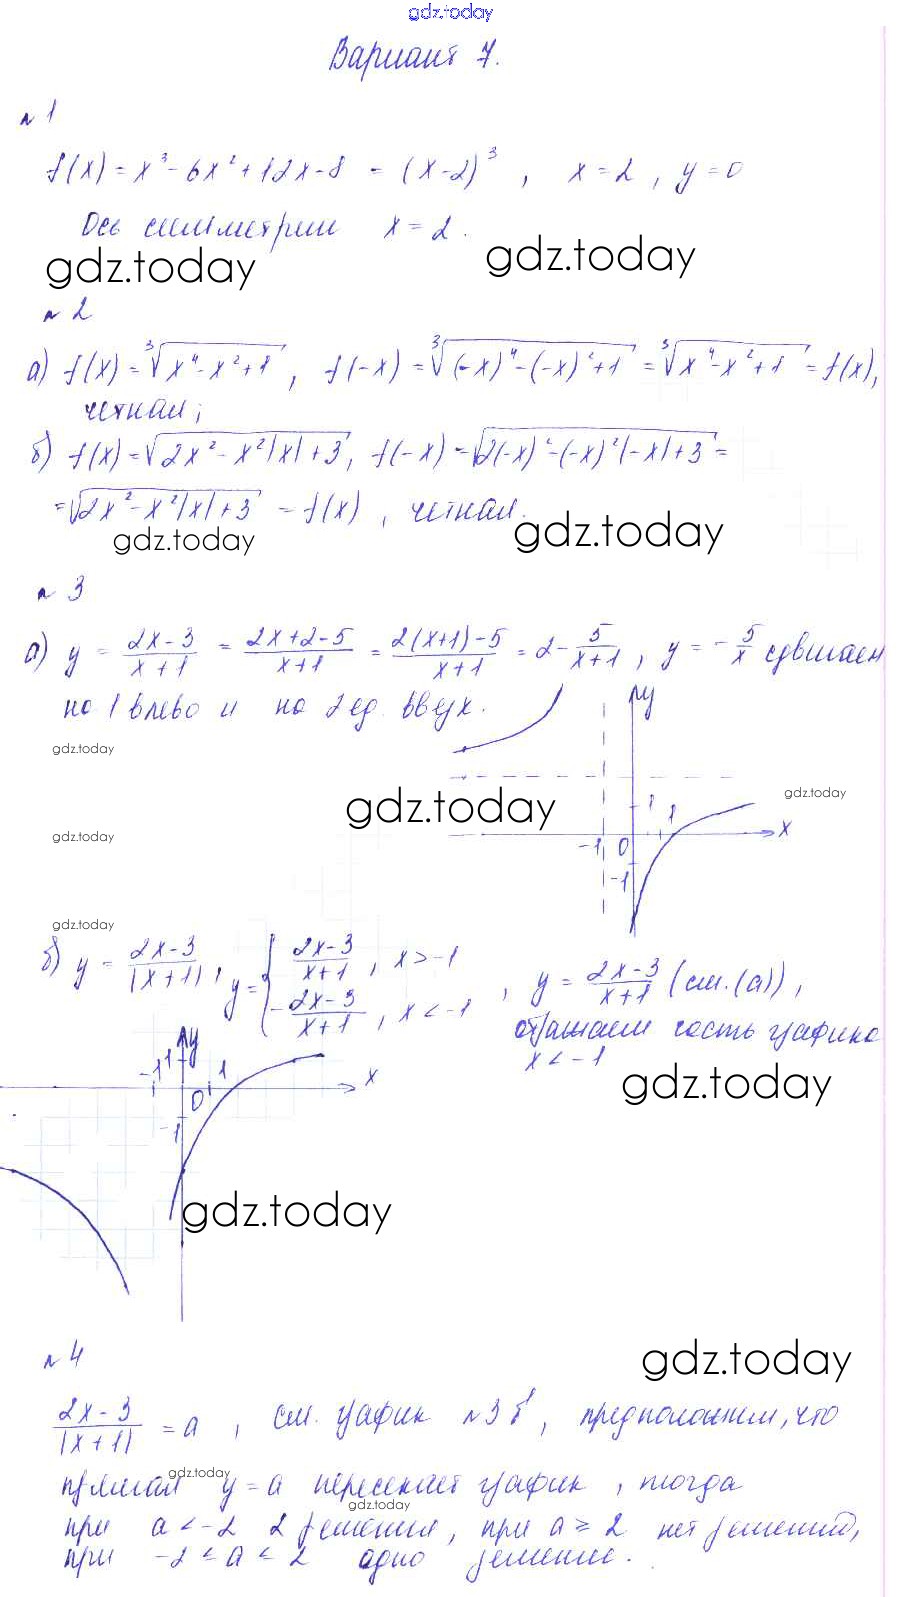 gdz.today
Вариант 7.
№1
f(x) = x³ - 6x² + 12x - 8 = (x-2)³, x = 2, y = 0
Ось симметрии x = 2.
gdz.today gdz.today
№2
а) f(x) = ∛(x⁴ - x² + 1), f(-x) = ∛((-x)⁴ - (-x)² + 1) = ∛(x⁴ - x² + 1) = f(x),
четная;
б) f(x) = √(2x² - x²|x| + 3), f(-x) = √(2(-x)² - (-x)²|-x| + 3) =
= √(2x² - x²|x| + 3) = f(x), четная.
gdz.today gdz.today
№3
а) y = (2x-3)/(x+1) = (2x+2-5)/(x+1) = (2(x+1)-5)/(x+1) = 2 - 5/(x+1), y = -5/x сдвигаем
на 1 влево и на 2 ед. вверх.
y
gdz.today
gdz.today gdz.today
1 1 x
-1 0
gdz.today
-1
gdz.today
б) y = (2x-3)/|x+1|, y = { (2x-3)/(x+1), x > -1
-(2x-3)/(x+1), x < -1, y = (2x-3)/(x+1) (см. (а)),
отражаем часть графика
x < -1
y
-1 1 1 x
0
-1
gdz.today
gdz.today
№4
gdz.today
(2x-3)/|x+1| = a, см. график №3 б, предположим, что
прямая y = a пересекает график, тогда
gdz.today
gdz.today
при a < -2 2 решения, при a ≥ 2 нет решений,
при -2 ≤ a < 2 одно решение.